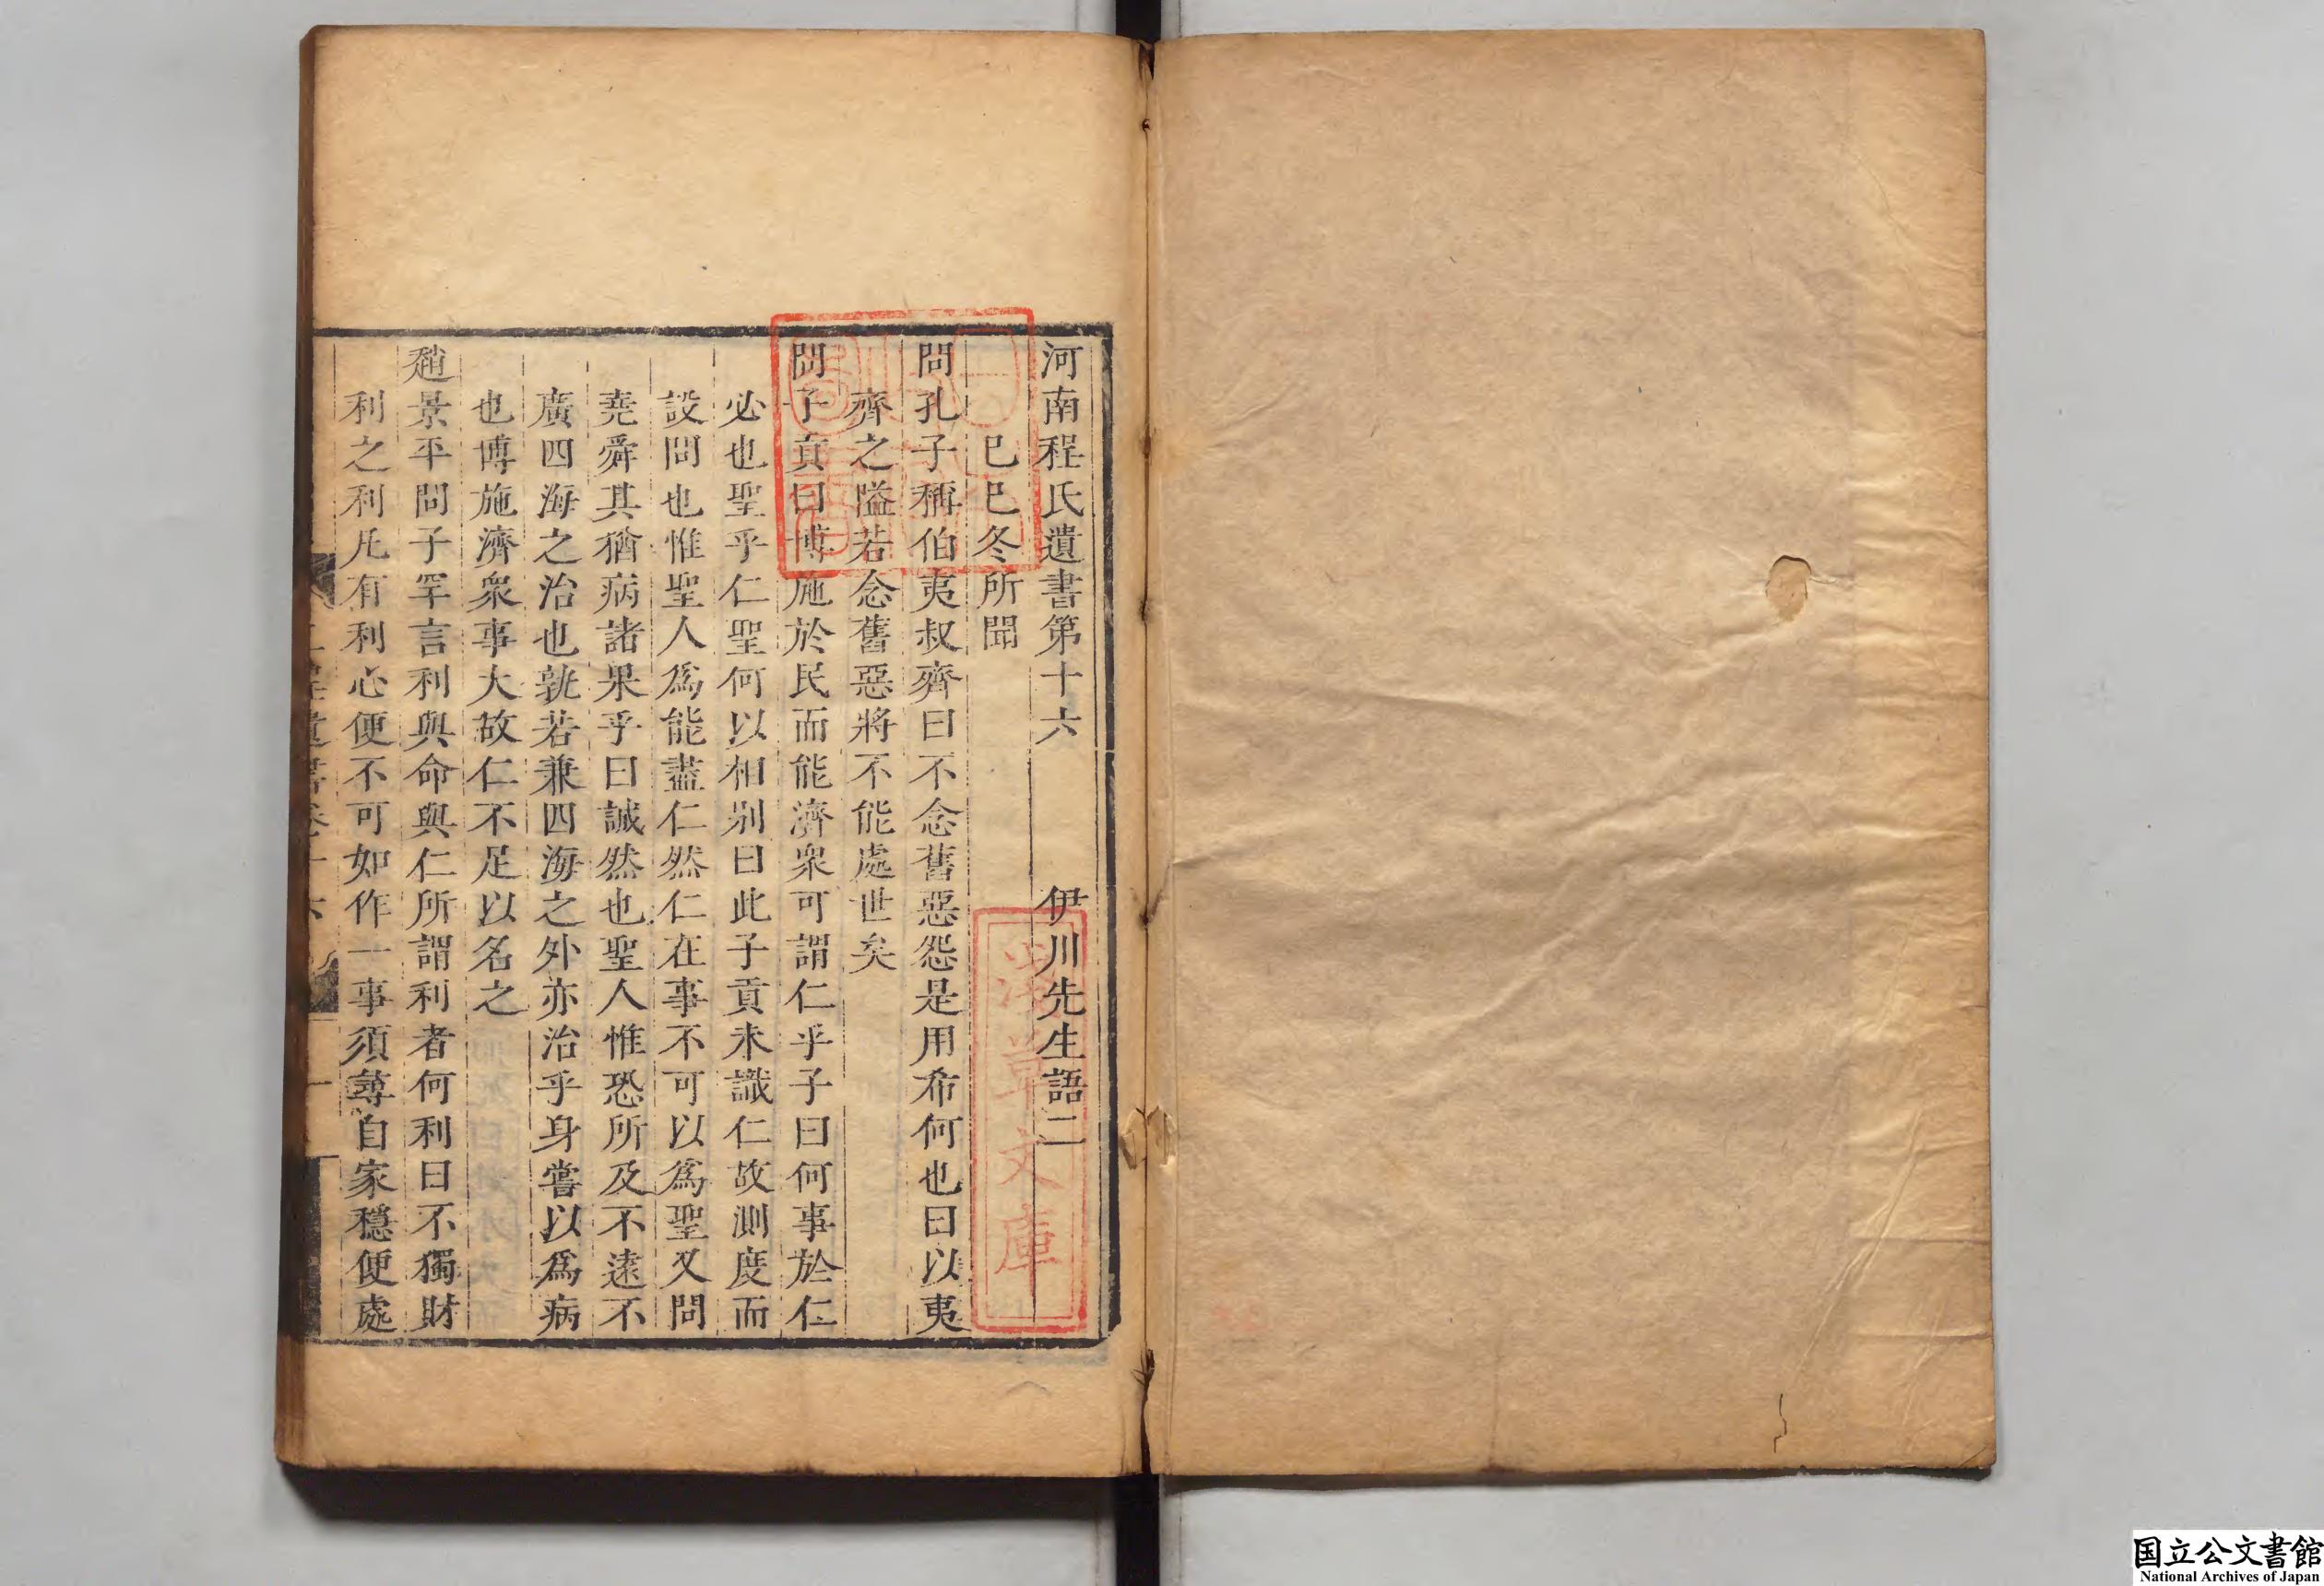 河南程氏遺書第十六 伊川先生語二
巳巳冬所聞
問孔子稱伯夷叔齊曰不念舊惡怨是用希何也曰以夷
齊之隘若念舊惡將不能處世矣
問子貢曰博施於民而能濟衆可謂仁乎子曰何事於仁
必也聖乎仁聖何以相别曰此子貢未識仁故測度而
設問也惟聖人爲能盡仁然仁在事不可以爲聖又問
堯舜其猶病諸果乎曰誠然也聖人惟恐所及不遠不
廣四海之治也孰若兼四海之外亦治乎身嘗以爲病
也博施濟衆事大故仁不足以名之
趙景平問子罕言利與命與仁所謂利者何利曰不獨財
利之利凡有利心便不可如作一事須尋自家穩便處
文庫
国立公文書館
National Archives of Japan